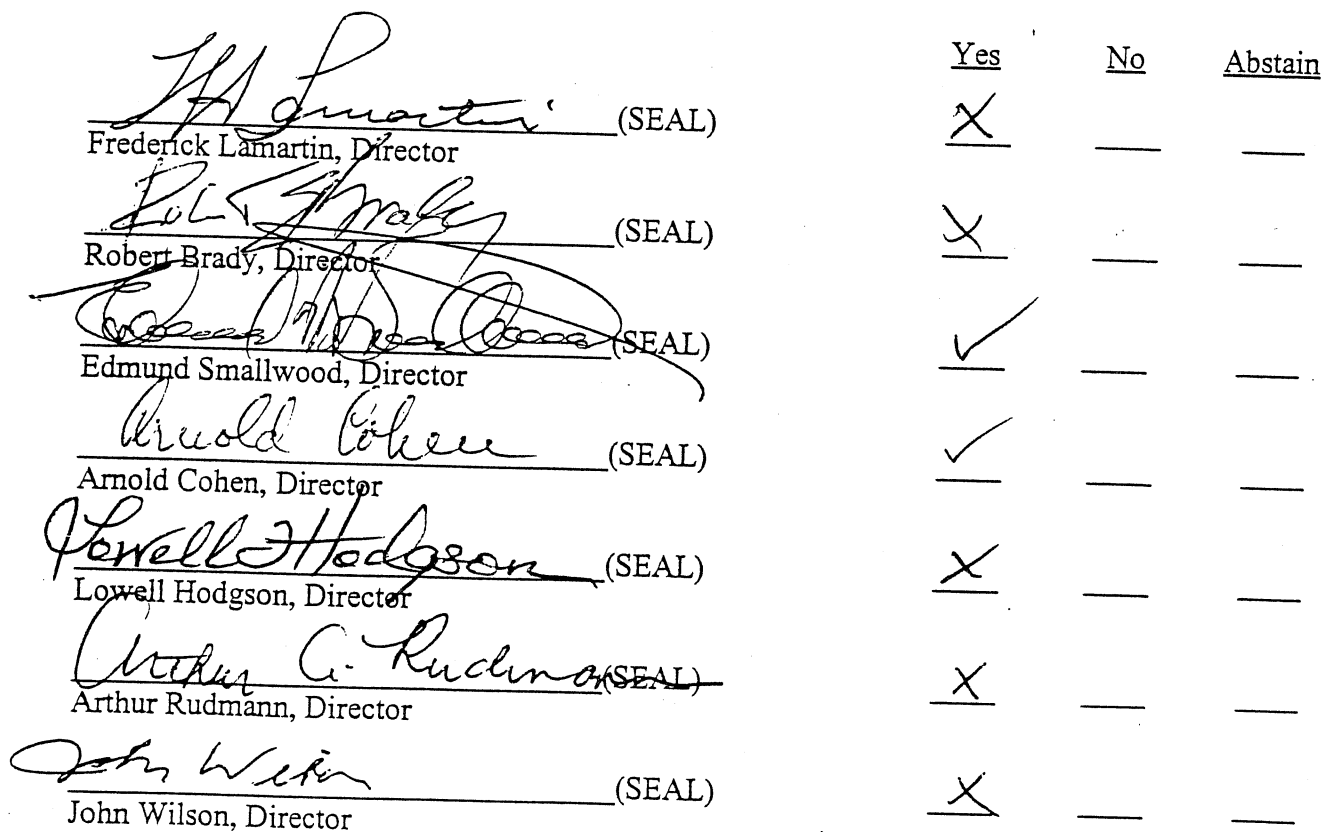 Yes No Abstain
Lamartin (SEAL) X
Frederick Lamartin, Director
Brady (SEAL) X
Robert Brady, Director
(SEAL) ✓
Edmund Smallwood, Director
Arnold Cohen (SEAL) ✓
Arnold Cohen, Director
Lowell Hodgson (SEAL) X
Lowell Hodgson, Director
Arthur C. Rudmann (SEAL) X
Arthur Rudmann, Director
John Wilson (SEAL) X
John Wilson, Director